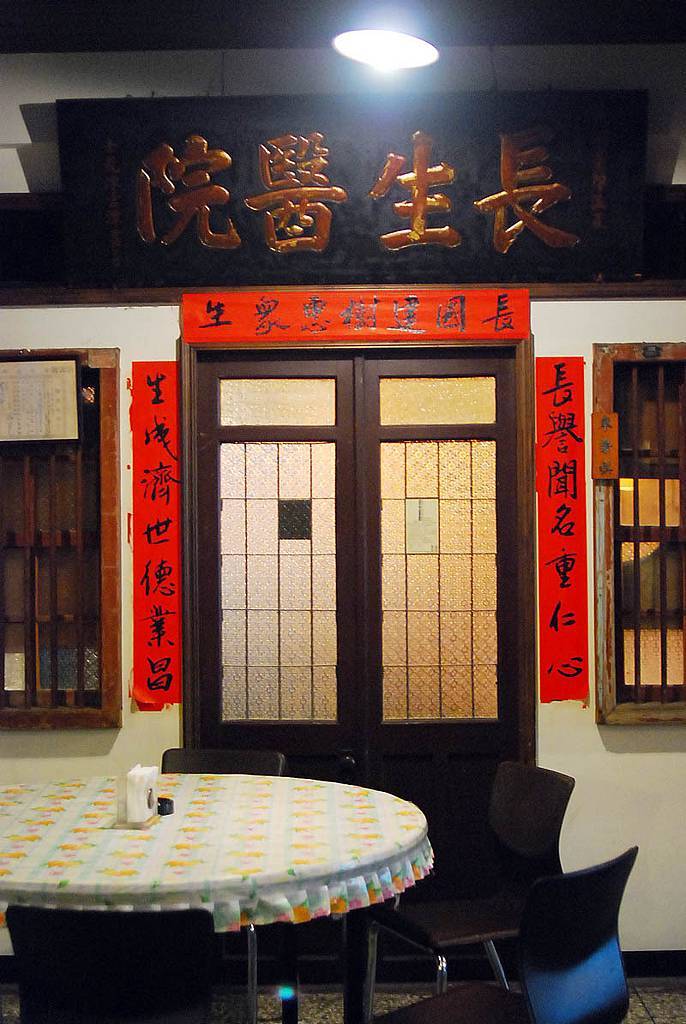 長生醫院
長國建樹惠眾生
長譽聞名重仁心
生成濟世德業昌